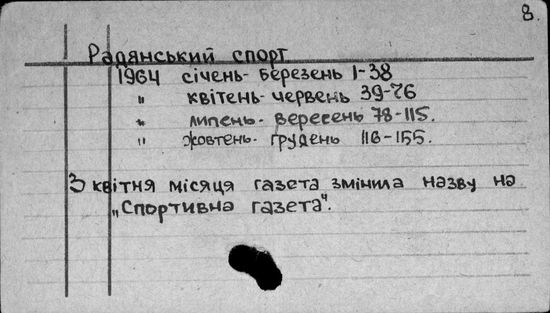 8.
Радянський спорт
1964 січень- березень 1-38
" квітень- червень 39-76
" липень- вересень 78-115.
" жовтень- грудень 116-155.
З квітня місяця газета змінила назву на
„Спортивна газета".